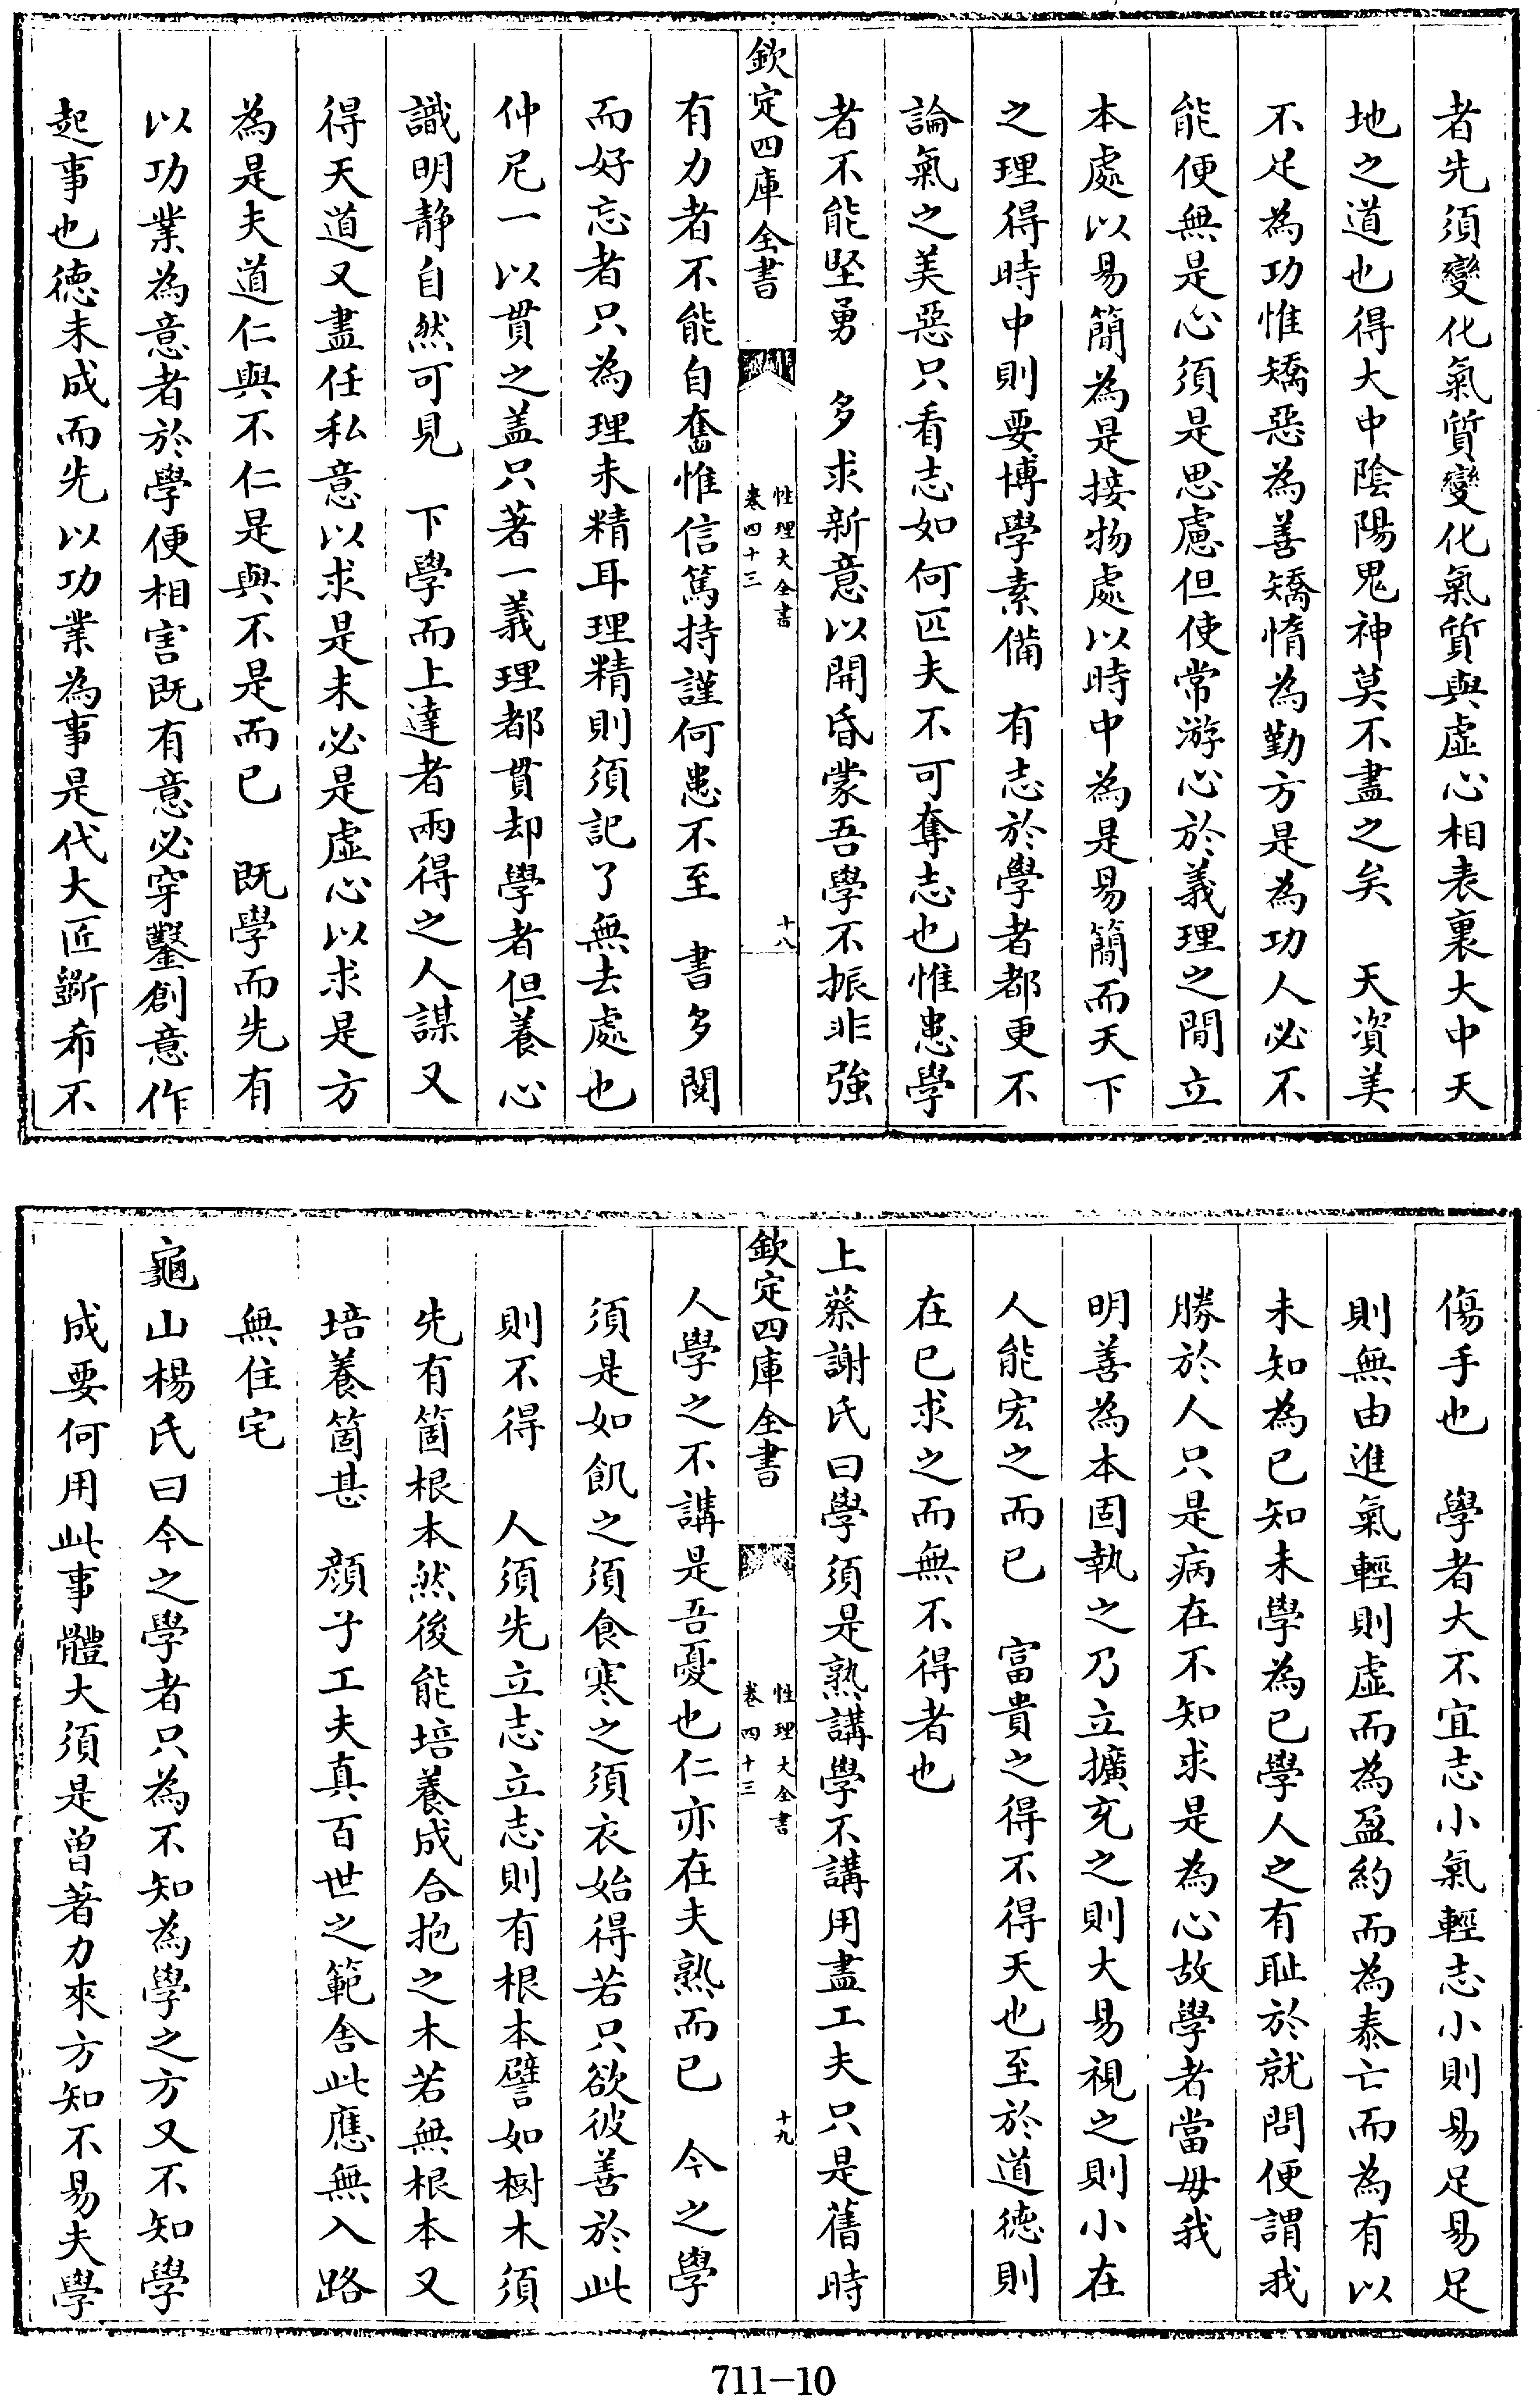 者先須變化氣質變化氣質與虛心相表裏大中天
地之道也得大中陰陽鬼神莫不盡之矣　天資美
不足為功惟矯惡為善矯惰為勤方是為功人必不
能便無是心須是思慮但使常游心於義理之間立
本處以易簡為是接物處以時中為是易簡而天下
之理得時中則要博學素備　有志於學者都更不
論氣之美惡只看志如何匹夫不可奪志也惟患學
者不能堅勇　多求新意以開昏蒙吾學不振非強
欽定四庫全書
性理大全書
卷四十三
十八
有力者不能自奮惟信篤持謹何患不至　書多閱
而好忘者只為理未精耳理精則須記了無去處也
仲尼一以貫之蓋只著一義理都貫却學者但養心
識明静自然可見　下學而上達者兩得之人謀又
得天道又盡任私意以求是未必是虛心以求是方
為是夫道仁與不仁是與不是而已　既學而先有
以功業為意者於學便相害既有意必穿鑿創意作
起事也德未成而先以功業為事是代大匠斲希不
傷手也　學者大不宜志小氣輕志小則易足易足
則無由進氣輕則虛而為盈約而為泰亡而為有以
未知為已知未學為已學人之有恥於就問便謂我
勝於人只是病在不知求是為心故學者當毋我
明善為本固執之乃立擴充之則大易視之則小在
人能宏之而已　富貴之得不得天也至於道德則
在已求之而無不得者也
上蔡謝氏曰學須是熟講學不講用盡工夫只是舊時
欽定四庫全書
性理大全書
卷四十三
十九
人學之不講是吾憂也仁亦在夫熟而已　今之學
須是如飢之須食寒之須衣始得若只欲彼善於此
則不得　人須先立志立志則有根本譬如樹木須
先有箇根本然後能培養成合抱之木若無根本又
培養箇甚　顔子工夫真百世之範舍此應無入路
無住宅
龜山楊氏曰今之學者只為不知為學之方又不知學
成要何用此事體大須是曾著力來方知不易夫學
711-10